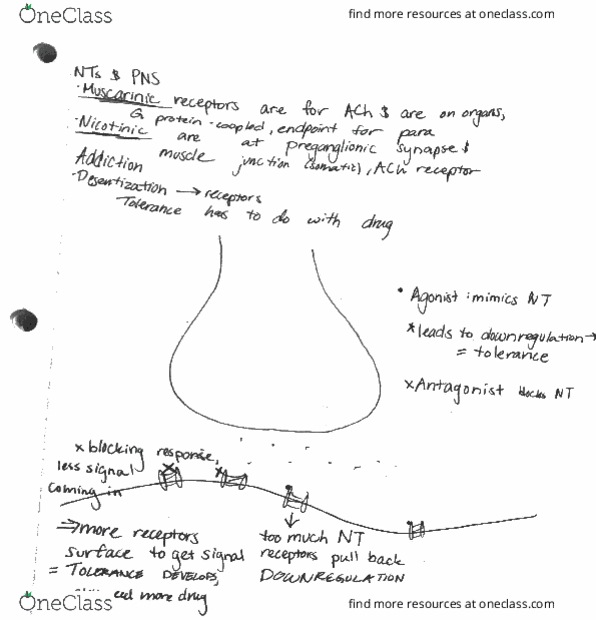 OneClass
find more resources at oneclass.com
NTs & PNS
· Muscarinic receptors are for ACh & are on organs,
G protein-coupled, endpoint for para
· Nicotinic are at preganglionic synapse &
muscle junction (somatic), ACh receptor
Addiction
· Desentization → receptors
Tolerance has to do with drug
• Agonist : mimics NT
* leads to downregulation →
= tolerance
x Antagonist blocks NT
x blocking response,
less signal
coming in
⇒ more receptors
surface to get signal
= TOLERANCE DEVELOPS,
more drug
↓
too much NT
receptors pull back
DOWNREGULATION
OneClass
find more resources at oneclass.com